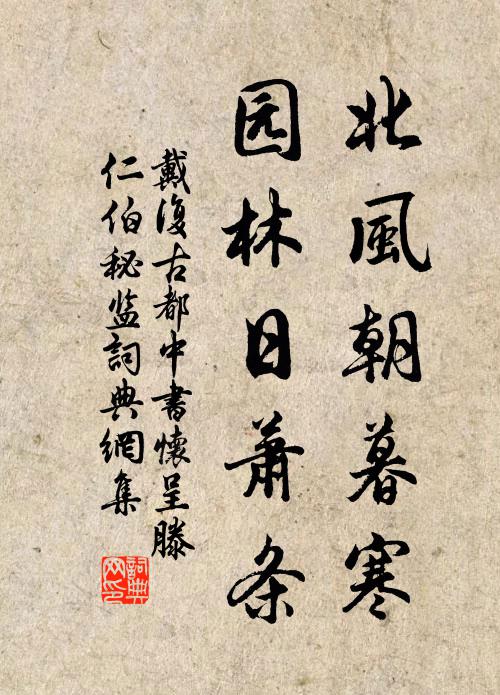 北風朝暮寒
园林日萧条
戴復古都中書懷呈滕
仁伯秘监詞典網集
詞典网印